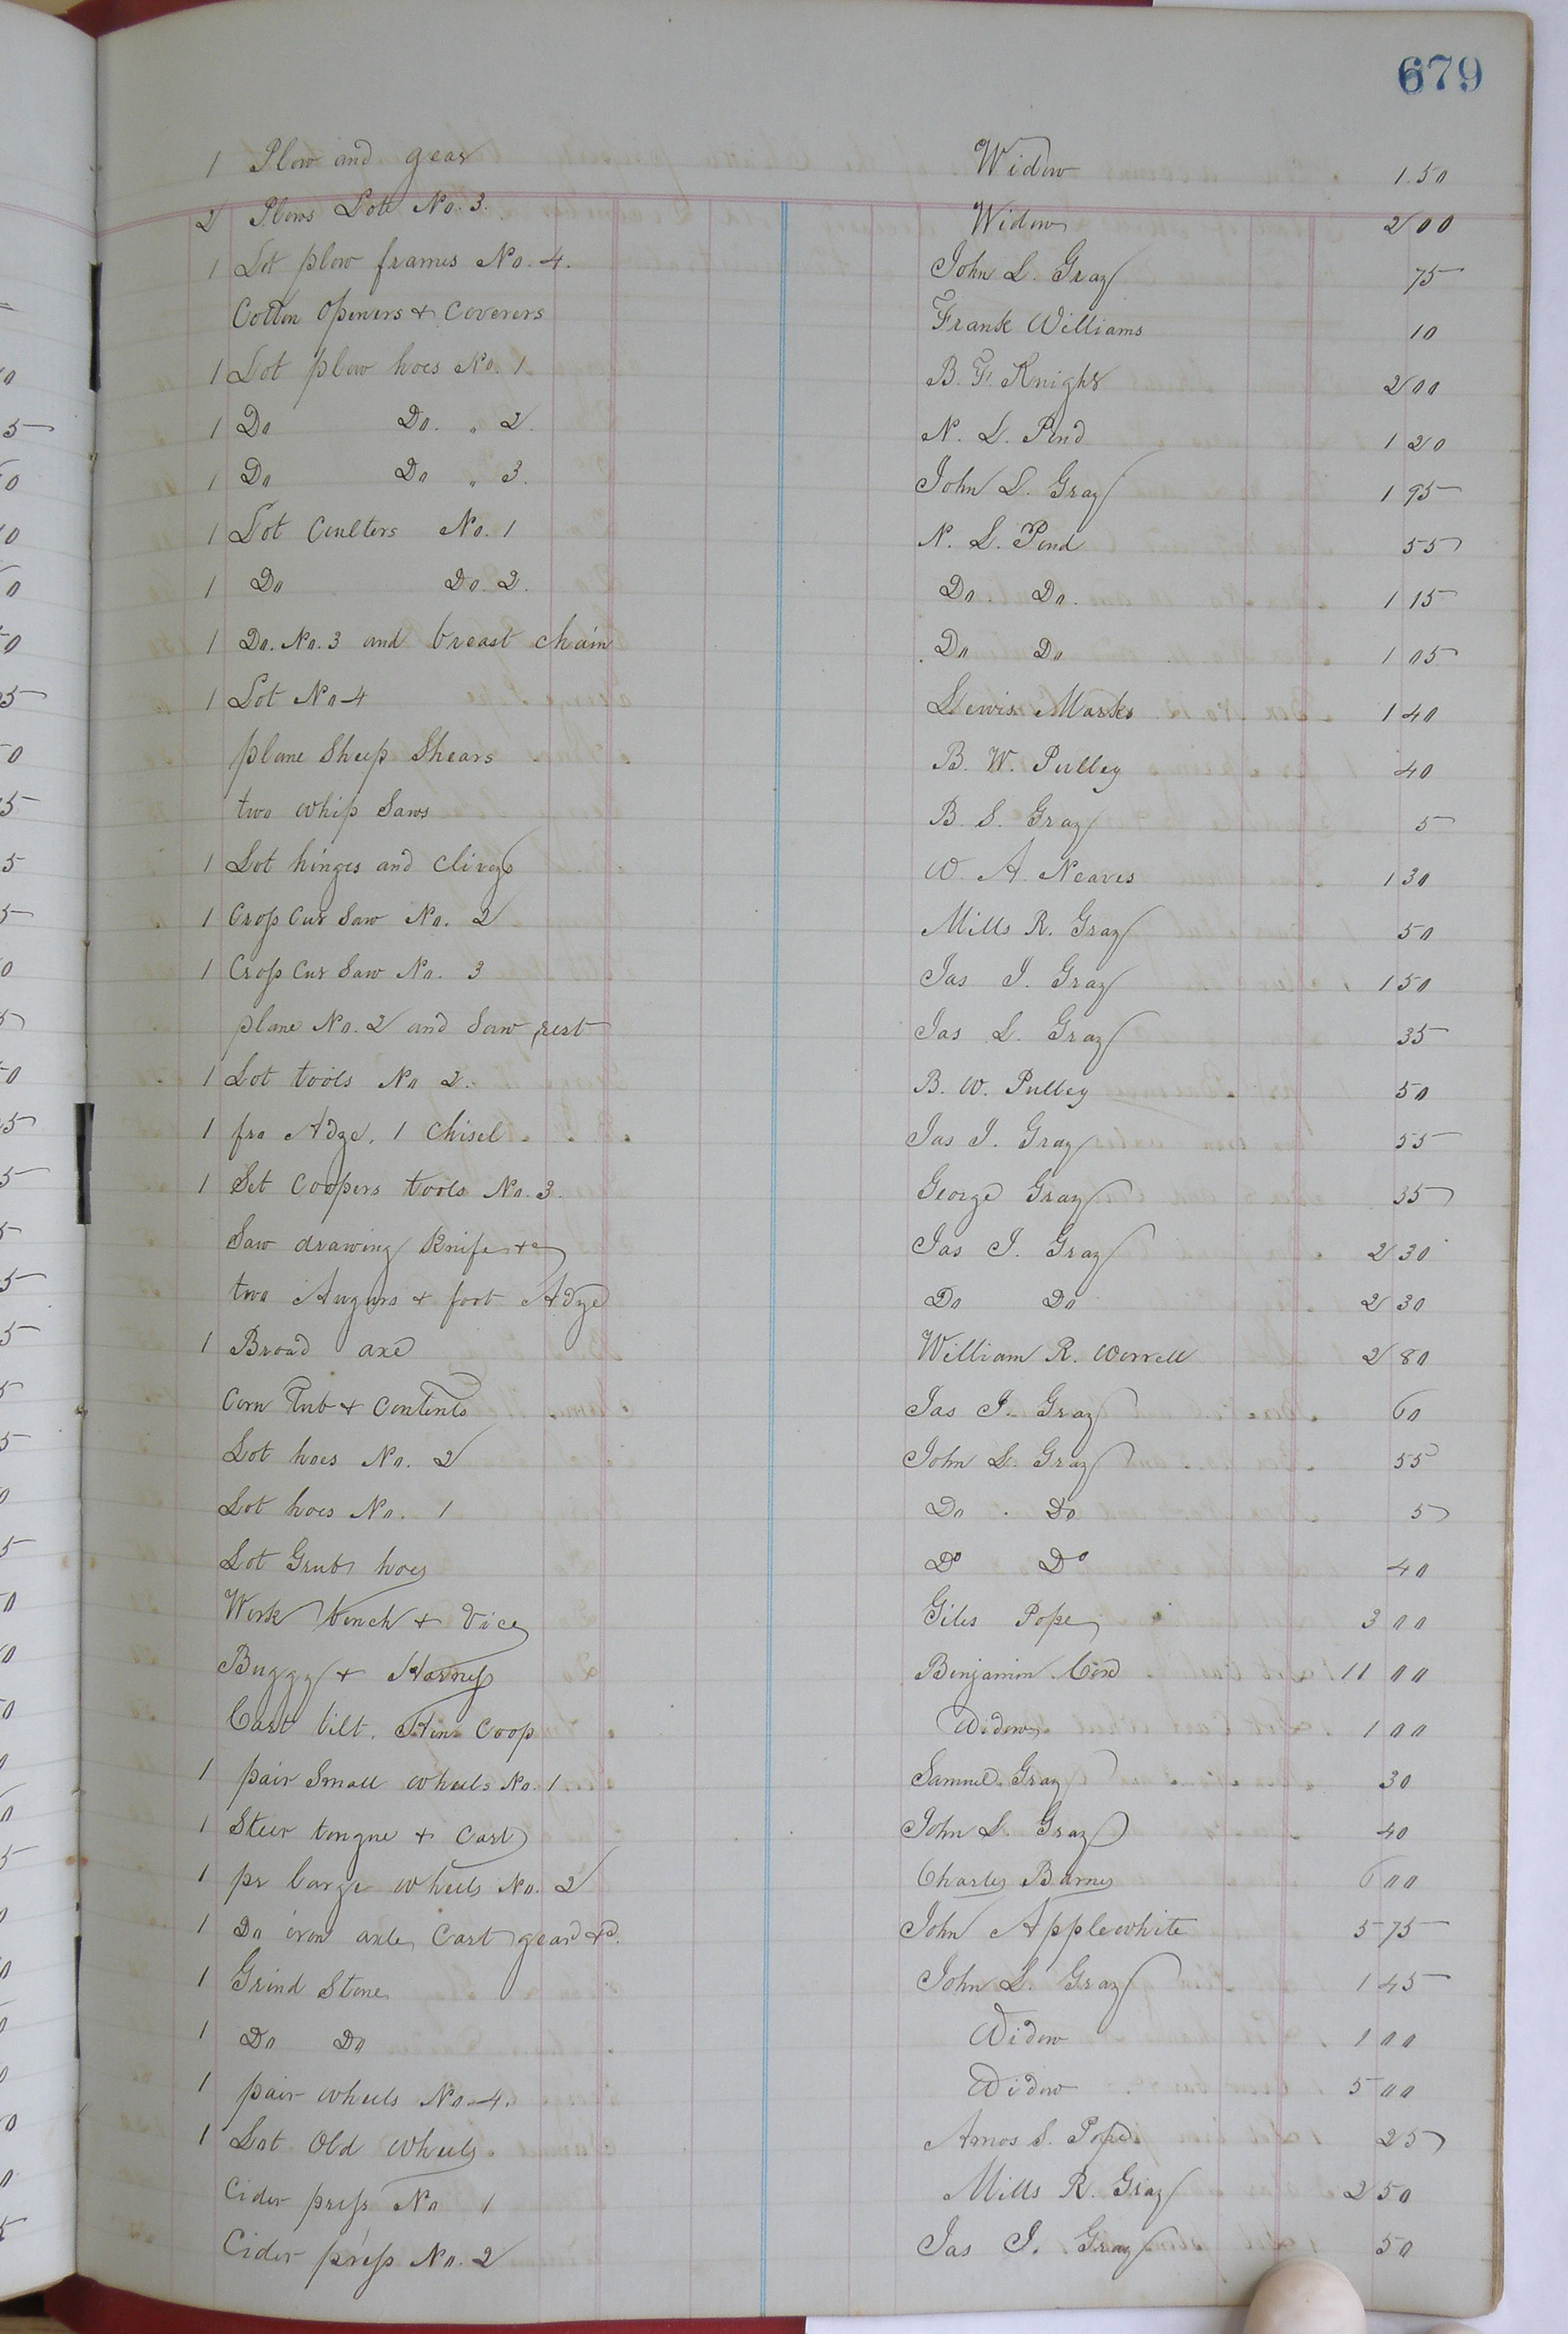 679
1 Plow and gear Widow 1.50
2 Plows Lot No. 3. Widow 2 00
1 Lot plow frames No. 4. John L. Gray 75
Cotton Openers + Coverers Frank Williams 10
1 Lot plow hoes No. 1 B. F. Knight 2 00
1 Do Do. " 2. N. L. Pond 1 20
1 Do Do " 3. John L. Gray 1 95
1 Lot Coulters No. 1 N. L. Pond 55
1 Do Do. 2. Do. Do. 1 15
1 Do. No. 3 and breast chain Do Do 1 05
1 Lot No 4 Lewis Marks 1 40
plane Sheep Shears B. W. Pulley 40
two whip Saws B. S. Gray 5
1 Lot hinges and cliveys W. A. Neaves 1 30
1 Cross Cut Saw No. 2 Mills R. Gray 50
1 Cross Cut Saw No. 3 Jas J. Gray 1 50
plane No. 2 and Saw rest Jas L. Gray 35
1 Lot tools No 2. B. W. Pulley 50
1 fro Adze, 1 Chisel Jas J. Gray 55
1 Set Coopers tools No. 3. George Gray 35
Saw drawing Knife +c Jas J. Gray 2 30
two Augurs + foot Adze Do Do 2 30
1 Broad axe William R. Worrell 2 80
Corn Tub + Contents Jas J. Gray 60
Lot hoes No. 2 John L. Gray 55
Lot hoes No. 1 Do Do 5
Lot Grub hoes Do Do 40
Work bench + Vice Giles Pope 3 00
Buggy + Harness Benjamin 11 00
Cart tilt, Hen Coop Widow 1 00
1 pair Small wheels No. 1 Samuel Gray 30
1 Steer tongue + Cart John L. Gray 40
1 pr large wheels No. 2 Charles Barnes 6 00
1 Do iron axle, Cart gear +c. John Applewhite 5 75
1 Grind Stone John L. Gray 1 45
1 Do Do Widow 1 00
1 pair wheels No. 4. Widow 5 00
1 Lot Old wheels Amos S. Pope 25
Cider press No 1 Mills R. Gray 2 50
Cider press No. 2 Jas J. Gray 50